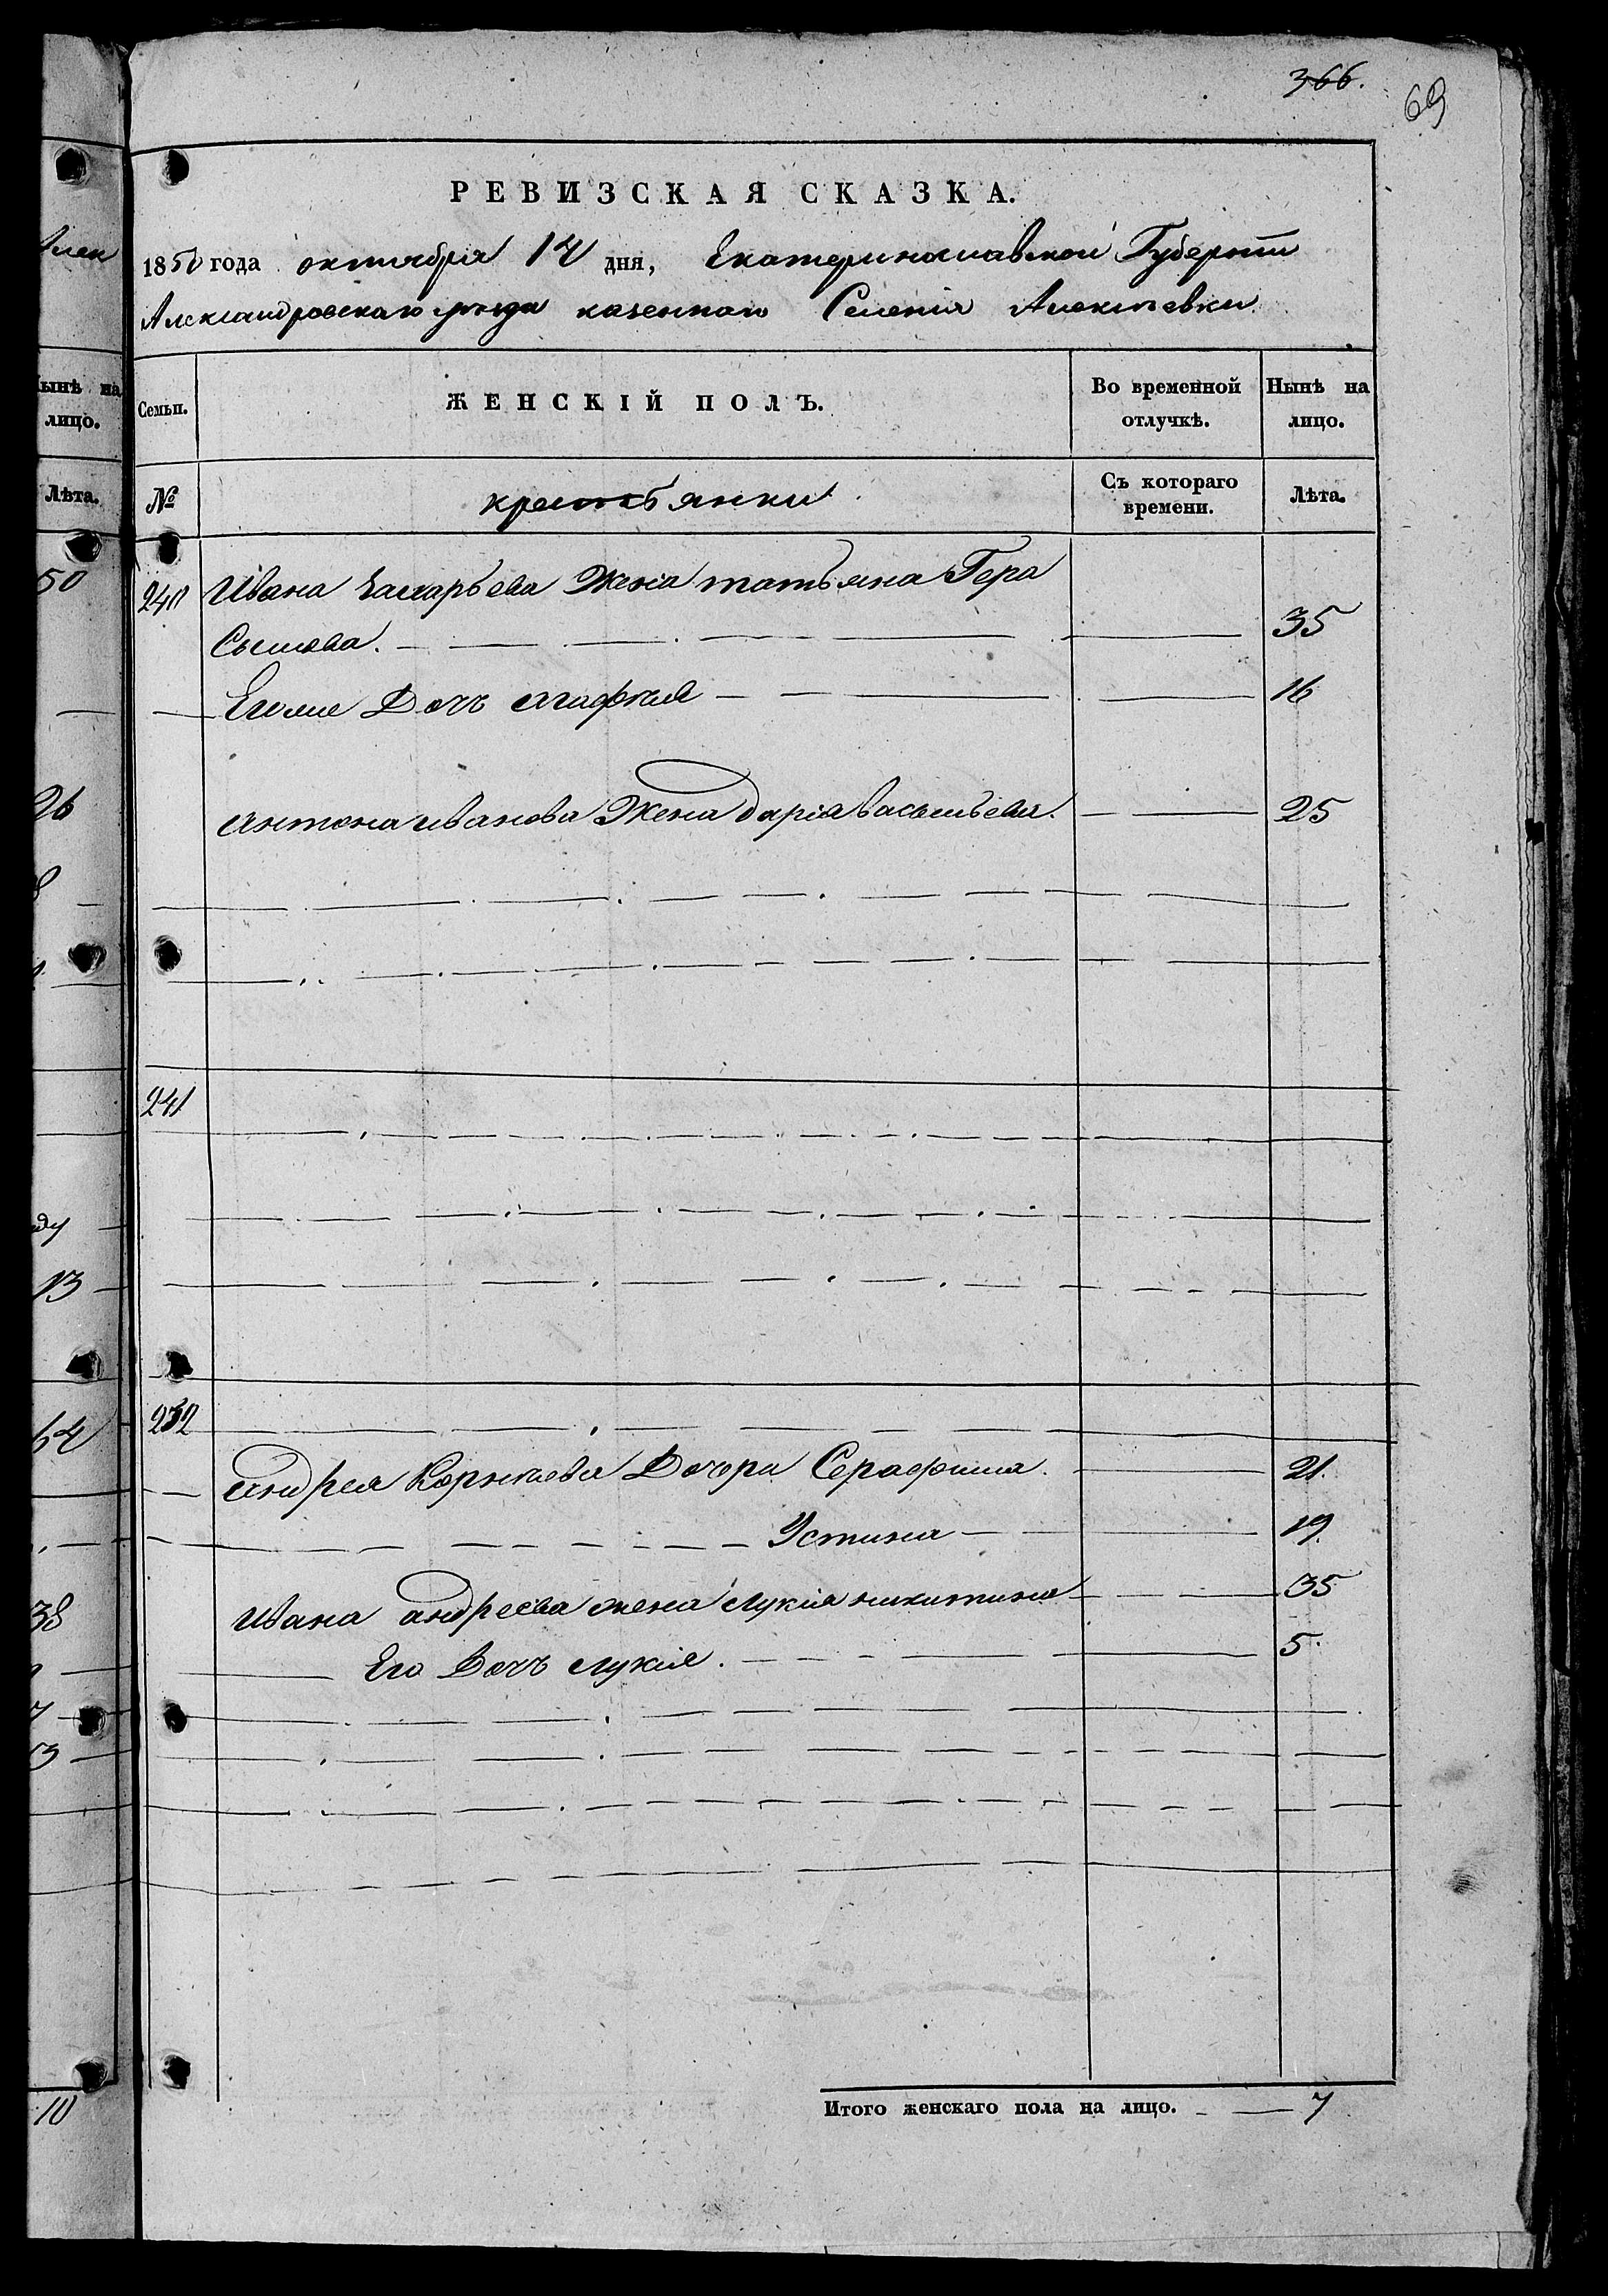 366.
69
РЕВИЗСКАЯ СКАЗКА.
1850 года октября 14 дня, Екатеринославской Губернии
Александровскаго уезда казеннаго Селенія Алексеевки.
Семьи.
ЖЕНСКІЙ ПОЛЪ.
Во временной отлучкѣ.
Нынѣ на лицо.
№
крестьянки
Съ котораго времени.
Лѣта.
240 Ивана Захарьева Жена татьяна Гера
Сымова. 35
Его же Дочь агафия 16
антона иванова Жена дарія васильева. 25
241
232
андрея Корнѣева Дочери Серафима. 21.
Устина 19.
ивана андреева жена лукія никитина 35
Его Дочь лукія. 5.
Итого женскаго пола на лицо. 7
Алек
Нынѣ на
лицо.
Лѣта.
50
26
13
64
38
10